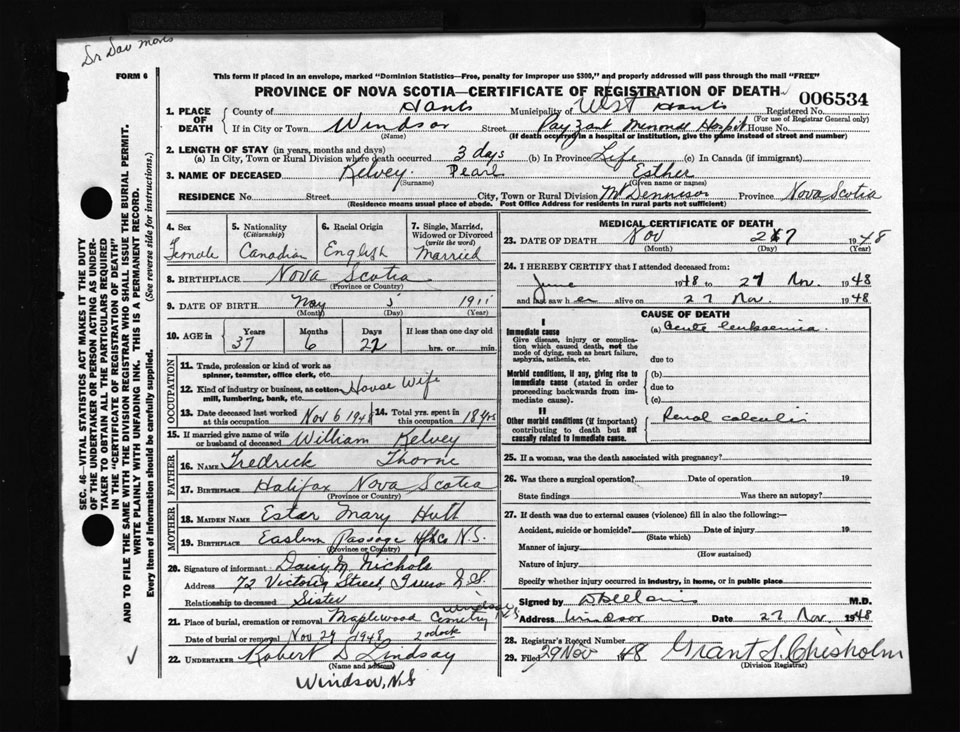 Dr Dav Moris
FORM 6
This form if placed in an envelope, marked "Dominion Statistics—Free, penalty for improper use $300," and properly addressed will pass through the mail "FREE"
PROVINCE OF NOVA SCOTIA—CERTIFICATE OF REGISTRATION OF DEATH
006534
1. PLACE OF DEATH { County of Hants Municipality of West Hants Registered No.
(For use of Registrar General only)
If in City or Town Windsor Street Payzant Memorial Hospit House No.
(Name) (If death occurred in a hospital or institution, give the name instead of street and number)
2. LENGTH OF STAY (in years, months and days)
(a) In City, Town or Rural Division where death occurred 3 days (b) In Province Life (c) In Canada (if immigrant)
3. NAME OF DECEASED Kelvey Pearl Esther
(Surname) (Given name or names)
RESIDENCE No. Street City, Town or Rural Division Mt Dennison Province Nova Scotia
(Residence means usual place of abode. Post Office Address for residents in rural parts not sufficient)
4. Sex Female
5. Nationality (Citizenship) Canadian
6. Racial Origin English
7. Single, Married, Widowed or Divorced (write the word) Married
8. BIRTHPLACE Nova Scotia
(Province or Country)
9. DATE OF BIRTH May 5 1911
(Month) (Day) (Year)
10. AGE in { Years Months Days If less than one day old
37 6 22 hrs. or min.
OCCUPATION
11. Trade, profession or kind of work as spinner, teamster, office clerk, etc.
12. Kind of industry or business, as cotton-mill, lumbering, bank, etc. House Wife
13. Date deceased last worked at this occupation Nov 6 1948 14. Total yrs. spent in this occupation 18 yrs
15. If married give name of wife or husband of deceased William Kelvey
FATHER
16. NAME Fredrick Thorne
17. BIRTHPLACE Halifax Nova Scotia
(Province or Country)
MOTHER
18. MAIDEN NAME Estar Mary Hutt
19. BIRTHPLACE Eastern Passage Hfx Co N.S.
(Province or Country)
20. Signature of informant Daisy M. Nichols
Address 72 Victoria Street, Truro N.S.
Relationship to deceased Sister
21. Place of burial, cremation or removal Maplewood Cemetry Windsor N.S
Date of burial or removal Nov 29 1948 2 oclock
22. UNDERTAKER Robert D Lindsay
(Name and address)
Windsor, N.S
MEDICAL CERTIFICATE OF DEATH
23. DATE OF DEATH Nov 27 1948
(Month) (Day) (Year)
24. I HEREBY CERTIFY that I attended deceased from:
June 1948 to 27 Nov. 1948
and last saw her alive on 27 Nov. 1948
CAUSE OF DEATH
I
Immediate cause (a) Acute leukaemia.
Give disease, injury or complication which caused death, not the mode of dying, such as heart failure, asphyxia, asthenia, etc.
due to
Morbid conditions, if any, giving rise to immediate cause (stated in order proceeding backwards from immediate cause). (b)
due to
(c)
II
Other morbid conditions (if important) contributing to death but not causally related to immediate cause. Renal calculi
25. If a woman, was the death associated with pregnancy?
26. Was there a surgical operation? Date of operation 19
State findings Was there an autopsy?
27. If death was due to external causes (violence) fill in also the following:—
Accident, suicide or homicide? Date of injury 19
(State which)
Manner of injury
(How sustained)
Nature of injury
Specify whether injury occurred in industry, in home, or in public place
Signed by M.D.
Address Windsor Date 27 Nov. 1948
28. Registrar's Record Number
29. Filed 29 Nov 48 Grant S. Chisholm
(Division Registrar)
SEC. 46—VITAL STATISTICS ACT MAKES IT THE DUTY
OF THE UNDERTAKER OR PERSON ACTING AS UNDER-
TAKER TO OBTAIN ALL THE PARTICULARS REQUIRED
IN THE "CERTIFICATE OF REGISTRATION OF DEATH"
AND TO FILE THE SAME WITH THE DIVISION REGISTRAR WHO SHALL ISSUE THE BURIAL PERMIT.
WRITE PLAINLY WITH UNFADING INK. THIS IS A PERMANENT RECORD.
Every item of Information should be carefully supplied. (See reverse side for instructions.)